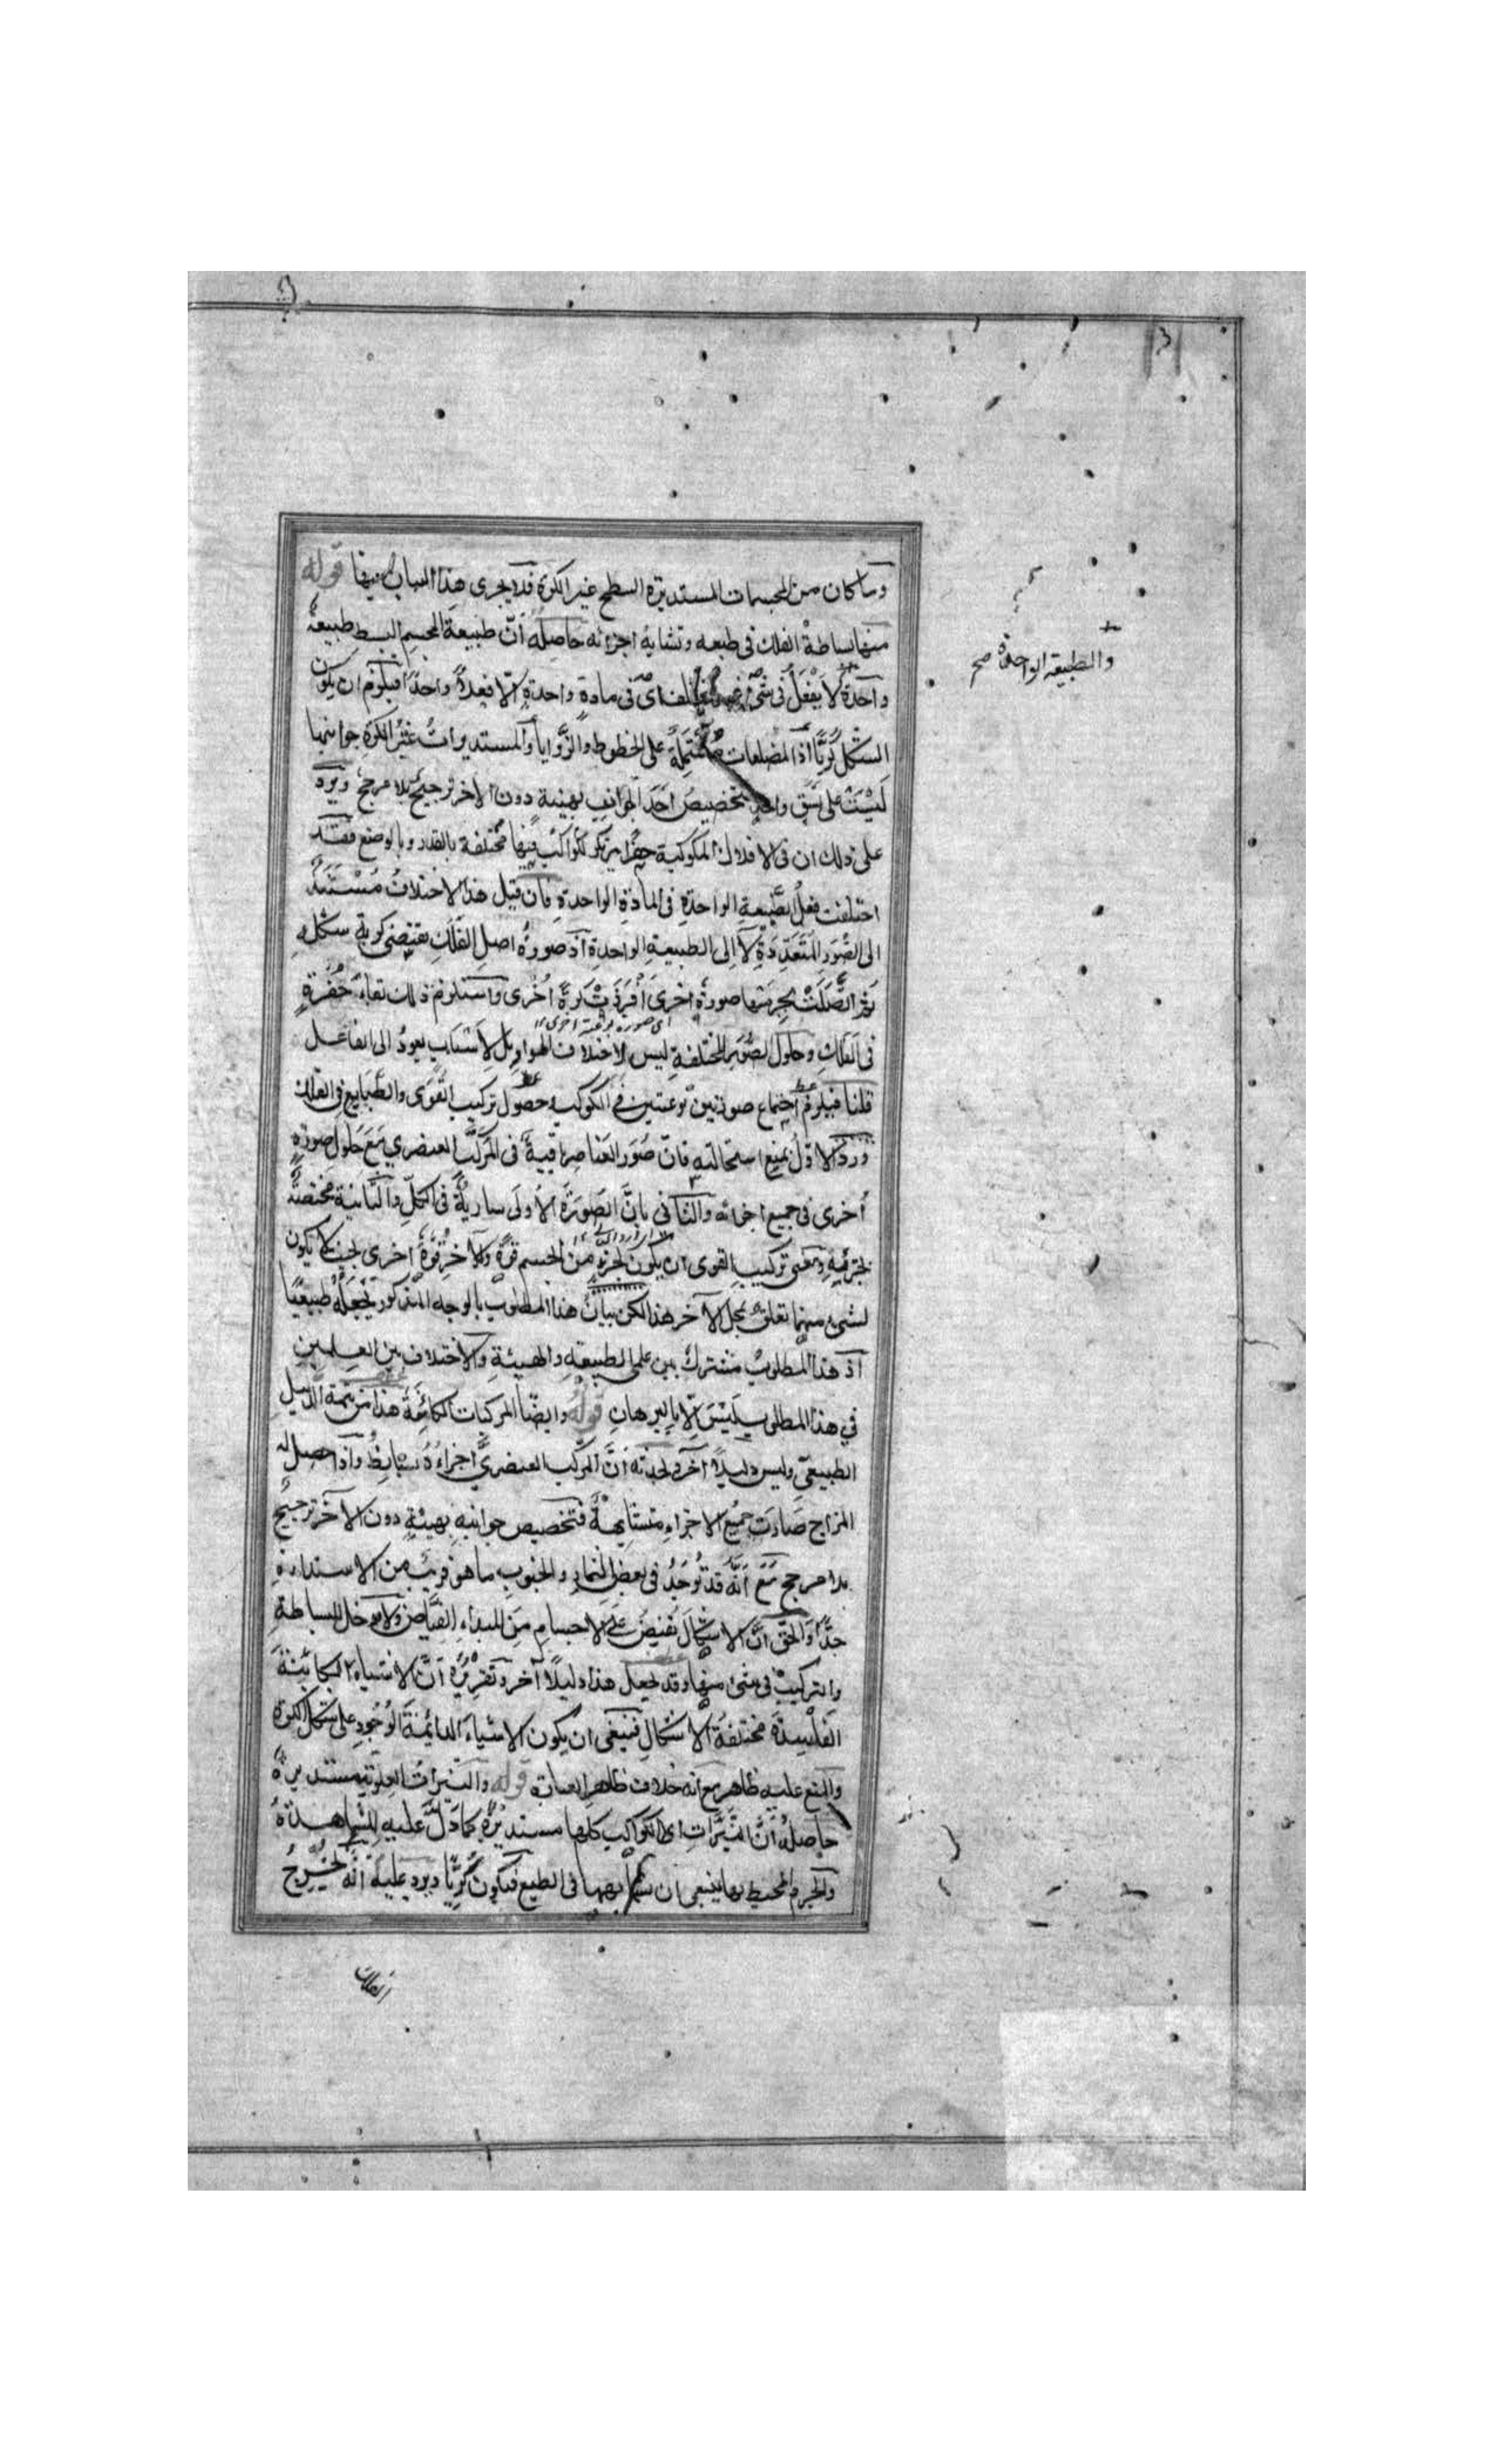 وما كان من المجسمات المستديرة السطح غير الكرة فلا يجرى هذا البيان فيها قوله
منها بساطة الفلك فى طبعه وتشابه اجزائه حاصله أنّ طبيعة الجسم البسيط طبيعةٌ
واحدةٌ لا يَفْعَلُ فى شىءٍ غير مختلف اى فى مادةٍ واحدةٍ الّا فعلاً واحدًا فيلزم ان يكون
الشكل كُرِيًّا اذ المضلعات مشتملةٌ على الخطوط والزَّوايا والمستديراتُ غَيْرُ الكرةِ جوانبها
لَيْسَتْ على نَسَقٍ واحدٍ فتخصيصُ احَدِ الجوانبِ بهيئة دون الاخر ترجيحٌ بلا مرجح ويرد
على ذلك ان فى الافلاك المكوكبة حفرا يرتكز الكواكب فيها مختلفة بالقدر وبالوضع فقد
اختلفت فعلُ الطَّبيعةِ الواحدةِ فى المادةِ الواحدةِ فان قيل هذا الاختلافُ مُسْتَنَدٌ
الى الصُّوَرِ المُتَعَدِّدَةِ لا الى الطبيعةِ الواحدةِ اذ صورةُ اصلِ الفَلَكِ يقتضى كرية شكله
ثم اتَّصَلَتْ بجرمها صورةٌ اخرى أَفْرَزَتْ كرةً أُخْرى واستلزم ذلك بقاءَ حُفْرَةٍ
اى صورة نوعية اخرى
فى الفَلَكِ وحلول الصُّوَرِ المختلفةِ ليس لاختلاف القوابل بل لأَسْبَابٍ يعودُ الى الفاعل
قلنا فيلزمُ اجتماع صورتين نوعيتين فى الكوكب وحصولُ تركيبِ القُوَى والطَّبَايِعِ فى الفلك
وردّ الاوّلُ بمنع استحالته فانّ صُوَرَ العَناصِرِ باقيةٌ فى المُرَكَّبِ العنصرى مَعَ حلولِ صورةٍ
أخرى فى جميع اجزائه والثانى بانَّ الصُّورَةَ الأُولَى ساريةٌ فى الكلِّ والثَّانيةَ مختصَّةٌ
بجزئيه ومعنى تركيبِ القوى ان يكون لجزءٍ من الجسم قوةٌ ولآخر قُوَّةٌ اخرى بحيث لا يكون
لشىء منهما تعلق بمحل الآخر هذا لكن بيانُ هذا المطلوب بالوجه المذكور يَجْعَلُهُ طبيعيًا
اذ هذا المطلوبُ مشتركٌ بين علمى الطبيعةِ والهيئةِ والاختلاف بين العلمين
فى هذا المطلوب لَيْسَ الّا بالبرهانِ قوله وايضًا المركبات الكائنةُ هذا من تتمة الدليل
الطبيعى وليس دليلاً آخر لجدّته أنَّ المركّب العنصرىَّ اجزاءُهُ بسايطُ واذا حصل له
المزاج صَارَت جميعُ الاجزاءِ متشابِهةً فتخصيص جوانبه بهيئةٍ دون الآخر ترجيحٌ
بلا مرجح مَعَ أَنَّه قد تُوجَدُ فى بعض الثمار والحبوب ما هو قريبٌ من الاستدارةِ
جدًّا والحقّ انَّ الاشكالَ تفيضُ عَلَى الاجسامِ مِنَ المبداءِ الفيَّاضِ ولا مدخل للبساطةِ
والتركيبِ فى شىء منها وقد يُجعل هذا دليلاً آخر وتقريرُه أَنَّ الاشياءَ الكائنةَ
الفاسدةَ مختلفةُ الاشكالِ فينبغى ان يكون الاشياءُ الدائمةُ الوُجُودِ على شكل الكرة
والمنع عليه ظاهر مع انه خلاف ظاهر العبارة قوله والنيراتُ العلوية مستديرةٌ
حاصلُهُ أَنَّ النَّيِّرَاتِ اى الكواكب كلها مستديرةٌ كما دَلَّ عليه المشاهدةُ
والجرم المحيط بها ينبغى ان يشابهها فى الطبع فيكونُ كُرِيًّا ويرد عليه أنَّه يخرجُ
الفلك
والطبيعة الواحدة صح